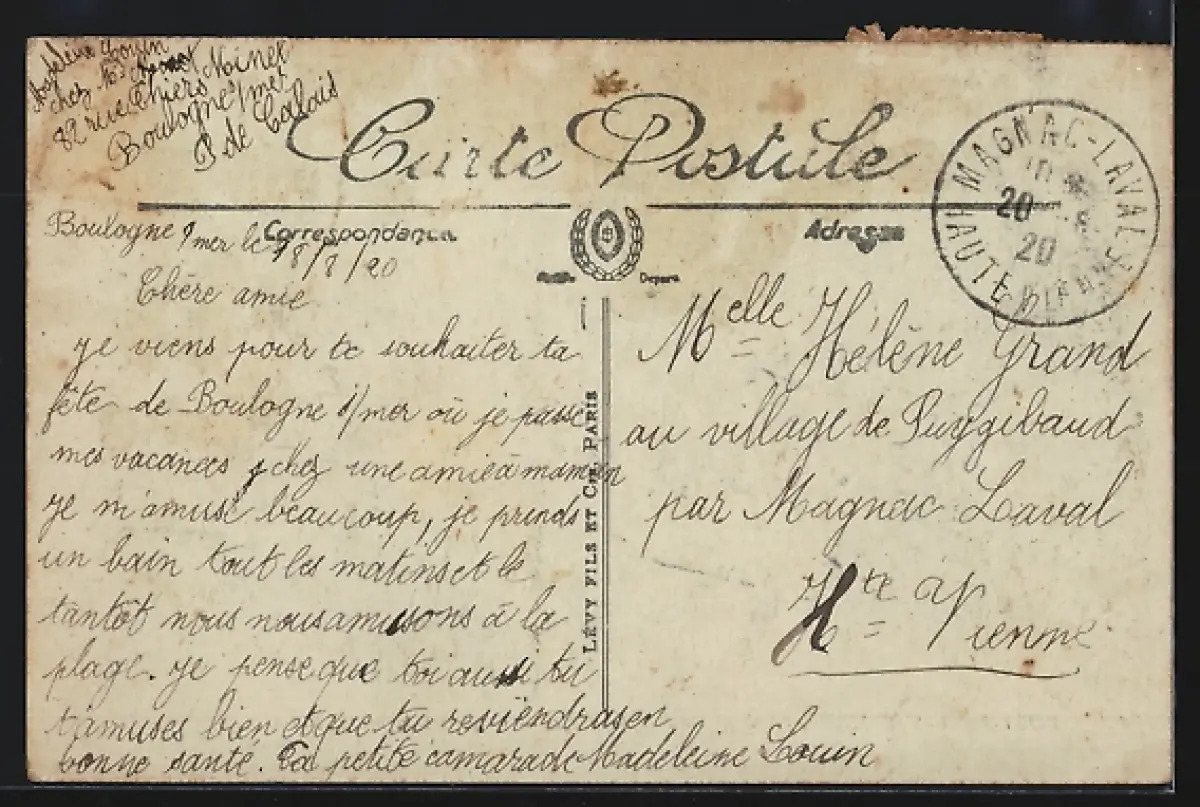 Madeleine Louin
chez Mr Minet
82 rue Thiers
Boulogne s/mer
P de Calais
Carte Postale
Correspondance
Adresse
MAGNAC-LAVAL
20
8
20
HAUTE VIENNE
Boulogne s/mer le 18/8/20
Chère amie
Je viens pour te souhaiter ta
fête de Boulogne s/mer où je passe
mes vacances chez une amie à maman
Je m'amuse beaucoup, je prends
un bain tout les matins et le
tantôt nous nous amusons à la
plage. Je pense que toi aussi tu
t'amuses bien et que tu reviendras en
bonne santé. Ta petite camarade Madeleine Louin
LÉVY FILS ET Cie, PARIS
Melle Hélène Grand
au village de Puygibaud
par Magnac Laval
Hte Vienne